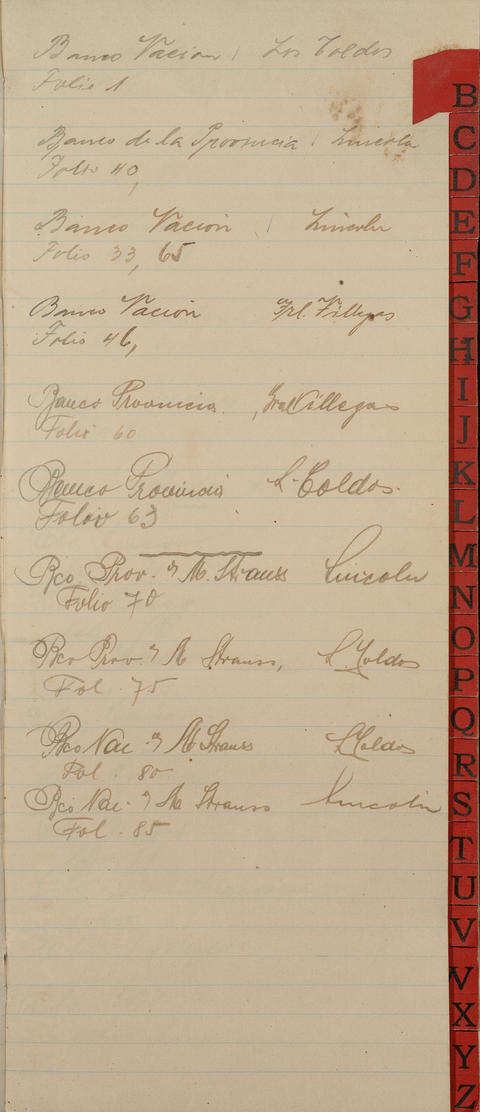 Banco Nacion | Los Toldos
Folio 1
Banco de la Provincia | Lincoln
Folio 40,
Banco Nacion | Lincoln
Folio 33, 65
Banco Nacion Gral. Villegas
Folio 46,
Banco Provincia. Gral Villegas
Folio 60
Banco Provincia L. Toldos.
Folio 63
Bco Prov. M. Strauss Lincoln
Folio 70
Bco Prov. M Strauss, L. Toldos
Fol. 75
Bco Nac. M Strauss L Toldos
Fol. 80
Bco Nac. M Strauss Lincoln
Fol. 85
B
C
D
E
F
G
H
I
J
K
L
M
N
O
P
Q
R
S
T
U
V
W
X
Y
Z